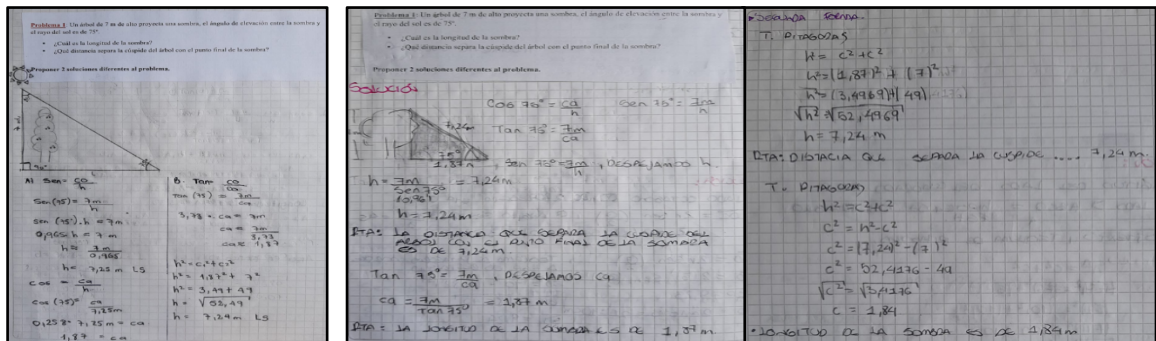 Problema 1: Un árbol de 7 m de alto proyecta una sombra, el ángulo de elevación entre la sombra y
el rayo del sol es de 75°.
• ¿Cuál es la longitud de la sombra?
• ¿Qué distancia separa la cúspide del árbol con el punto final de la sombra?
Proponer 2 soluciones diferentes al problema.
7m
90°
A) Sen = co/h
Sen(75) = 7m/h
sen (75°).h = 7m
0,965.h = 7m
h = 7m/0,965
h = 7,25 m LS
cos = ca/h
cos (75)° = ca/7,25m
0,258 · 7,25m = ca
1,87 = ca
B. Tan = co/ca
Tan (75) = 7m/ca
3,73 · ca = 7m
ca = 7m/3,73
ca = 1,87
h² = c₁² + c₂²
h² = 1,87² + 7²
h² = 3,49 + 49
h = √52,49
h = 7,24m LS
Problema 1: Un árbol de 7 m de alto proyecta una sombra, el ángulo de elevación entre la sombra y
el rayo del sol es de 75°.
• ¿Cuál es la longitud de la sombra?
• ¿Qué distancia separa la cúspide del árbol con el punto final de la sombra?
Proponer 2 soluciones diferentes al problema.
SOLUCIÓN
Cos 75° = ca/h Sen 75° = 7m/h
Tan 75° = 7m/ca
7,24m
1,87m
, Sen 75° = 7m/h , DESPEJAMOS h
h = 7m/Sen 75° = 7,24m
h = 7,24m
RTA: LA DISTANCIA QUE SEPARA LA CUSPIDE DEL
ARBOL CON EL PUNTO FINAL DE LA SOMBRA
ES DE 7,24m
Tan 75° = 7m/ca , DESPEJAMOS ca
ca = 7m/Tan 75° = 1,87m
RTA = LA LONGITUD DE LA SOMBRA ES DE 1,87m
• SEGUNDA FORMA.
T. PITAGORAS
h² = c² + c²
h² = (1,87)² + (7)²
h² = (3,4969) + (49)
√h² = √52,4969
h = 7,24 m
RTA: DISTACIA QUE SEPARA LA CUSPIDE .... 7,24m.
T. PITAGORAS
h² = c² + c²
c² = h² - c²
c² = (7,24)² - (7)²
c² = 52,4176 - 49
√c² = √3,4176
c = 1,84
• LONGITUD DE LA SOMBRA ES DE 1,84m